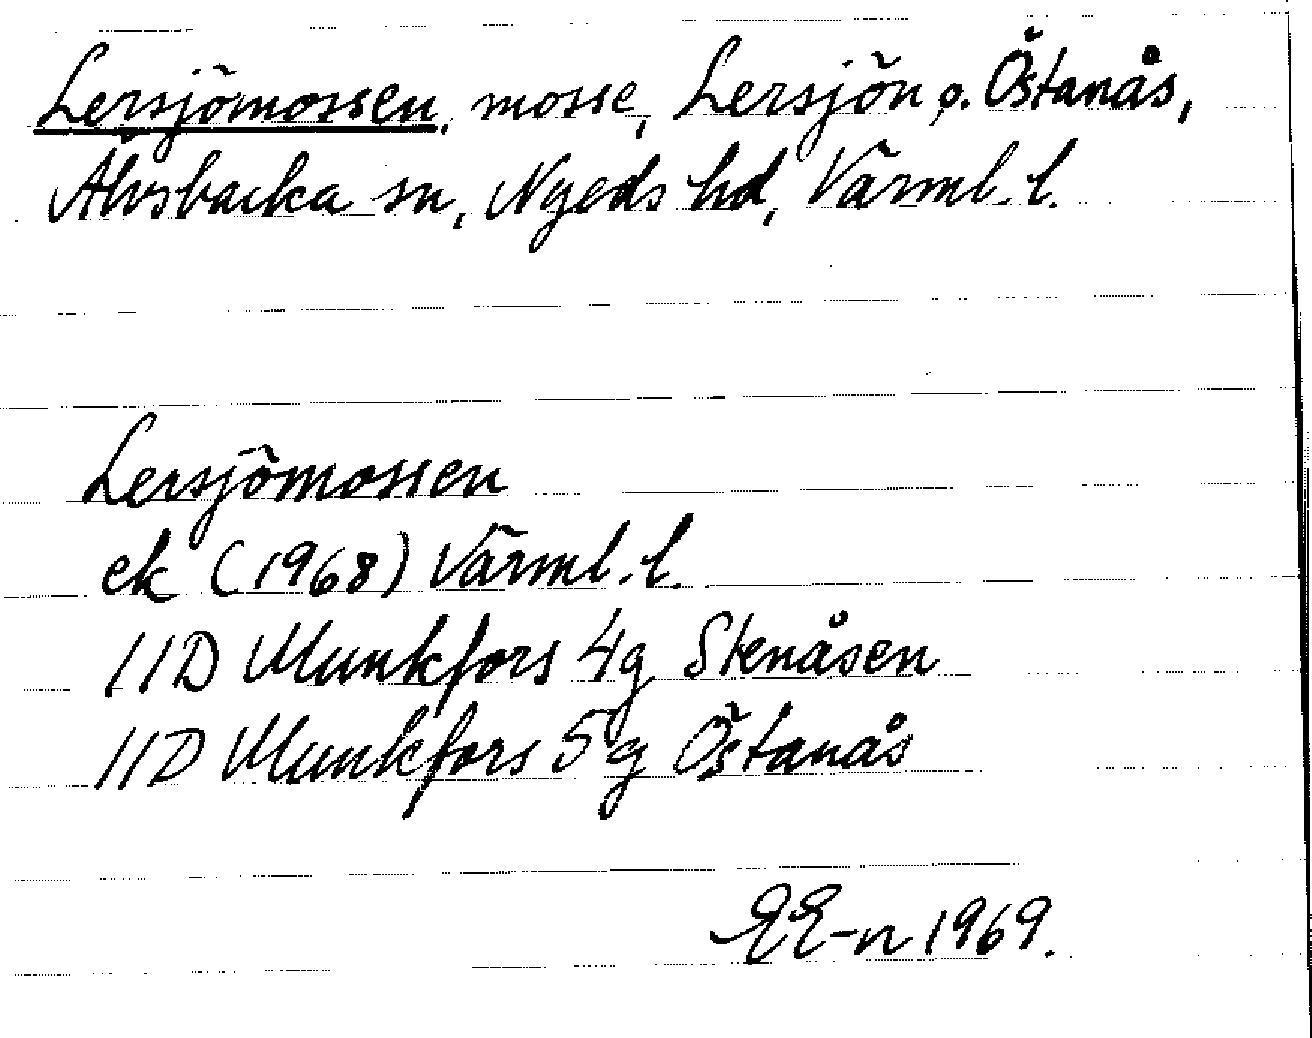 Lersjömossen, mosse, Lersjön o. Östanås,
Älvsbacka sn, Nyeds hd, Värml. l.
Lersjömossen
ek (1968) Värml. l.
11D Munkfors 4g Stenåsen
11D Munkfors 5g Östanås
EE-n 1969.